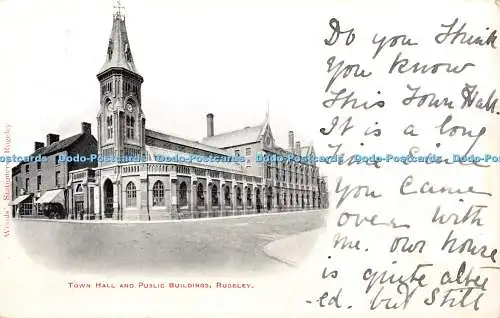 Do you think
you know
this Town Hall.
It is a long
time since
you came
over with
me. our house
is quite alter
-ed. but still
Wood's Stationery Rugeley
Dodo-Postcards Dodo-Postcards Dodo-Postcards Dodo-Postcards Dodo-Postcards
Town Hall and Public Buildings, Rugeley.